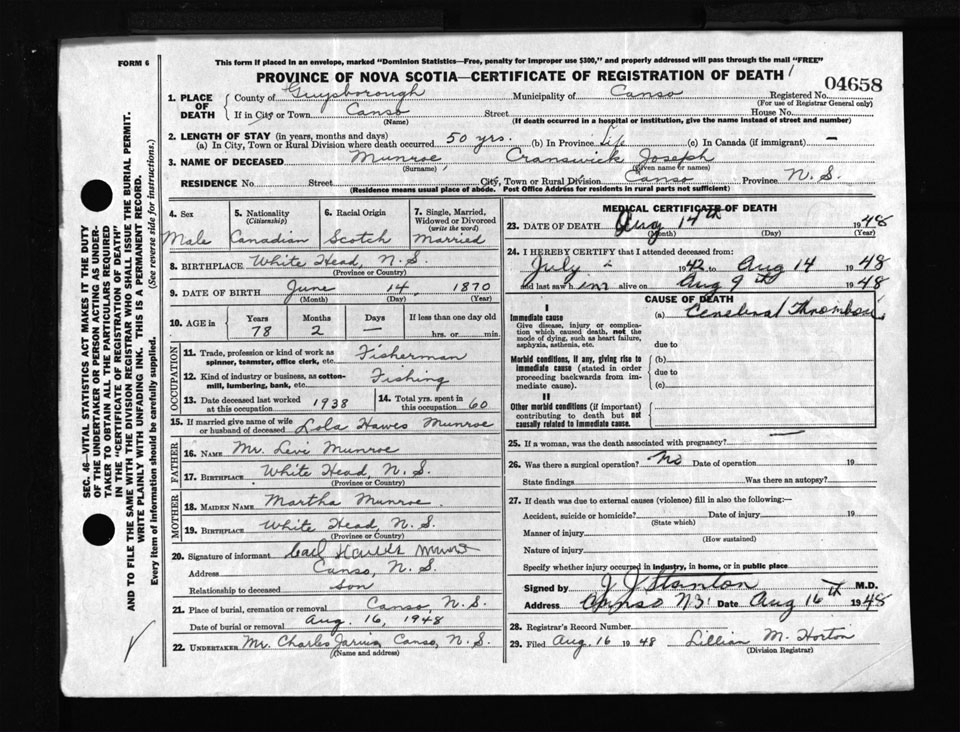 FORM 6
This form if placed in an envelope, marked "Dominion Statistics—Free, penalty for improper use $300," and properly addressed will pass through the mail "FREE"
PROVINCE OF NOVA SCOTIA—CERTIFICATE OF REGISTRATION OF DEATH
04658
1. PLACE OF DEATH County of Guysborough Municipality of Canso Registered No.
(For use of Registrar General only)
If in City or Town Canso Street House No.
(Name) (If death occurred in a hospital or institution, give the name instead of street and number)
2. LENGTH OF STAY (in years, months and days)
(a) In City, Town or Rural Division where death occurred 50 yrs. (b) In Province Life (c) In Canada (if immigrant) —
3. NAME OF DECEASED Munroe Cranswick Joseph
(Surname) (Given name or names)
RESIDENCE No. Street City, Town or Rural Division Canso Province N. S.
(Residence means usual place of abode. Post Office Address for residents in rural parts not sufficient)
4. Sex Male
5. Nationality (Citizenship) Canadian
6. Racial Origin Scotch
7. Single, Married, Widowed or Divorced (write the word) Married
8. BIRTHPLACE White Head, N. S.
(Province or Country)
9. DATE OF BIRTH June 14, 1870
(Month) (Day) (Year)
10. AGE in Years 78 Months 2 Days — If less than one day
hrs. or min.
OCCUPATION
11. Trade, profession or kind of work as spinner, teamster, office clerk, etc. Fisherman
12. Kind of industry or business, as cotton-mill, lumbering, bank, etc. Fishing
13. Date deceased last worked at this occupation 1938
14. Total yrs. spent in this occupation 60
15. If married give name of wife or husband of deceased Lola Hawes Munroe
FATHER
16. NAME Mr. Levi Munroe
17. BIRTHPLACE White Head, N. S.
(Province or Country)
MOTHER
18. MAIDEN NAME Martha Munroe
19. BIRTHPLACE White Head, N. S.
(Province or Country)
20. Signature of informant Munroe
Address Canso, N. S.
Relationship to deceased Son
21. Place of burial, cremation or removal Canso, N. S.
Date of burial or removal Aug. 16, 1948
22. UNDERTAKER Mr. Charles Jarvis, Canso, N. S.
(Name and address)
MEDICAL CERTIFICATE OF DEATH
23. DATE OF DEATH Aug 14th 1948
(Month) (Day) (Year)
24. I HEREBY CERTIFY that I attended deceased from:
July 2 1942 to Aug 14 1948
and last saw him alive on Aug 9th 1948
CAUSE OF DEATH
I
Immediate cause (a) Cerebral Thrombosis
Give disease, injury or complication which caused death, not the mode of dying, such as heart failure, asphyxia, asthenia, etc.
due to
Morbid conditions, if any, giving rise to immediate cause (stated in order proceeding backwards from immediate cause).
(b)
due to
(c)
II
Other morbid conditions (if important) contributing to death but not causally related to immediate cause.
25. If a woman, was the death associated with pregnancy? —
26. Was there a surgical operation? No Date of operation 19
State findings Was there an autopsy?
27. If death was due to external causes (violence) fill in also the following:—
Accident, suicide or homicide? Date of injury 19
(State which)
Manner of injury
(How sustained)
Nature of injury
Specify whether injury occurred in industry, in home, or in public place
Signed by J J Stanton M.D.
Address Canso N.S. Date Aug 16th 1948
28. Registrar's Record Number
29. Filed Aug. 16 1948 Lillian M. Horton
(Division Registrar)
SEC. 46—VITAL STATISTICS ACT MAKES IT THE DUTY
OF THE UNDERTAKER OR PERSON ACTING AS UNDER-
TAKER TO OBTAIN ALL THE PARTICULARS REQUIRED
IN THE "CERTIFICATE OF REGISTRATION OF DEATH"
AND TO FILE THE SAME WITH THE DIVISION REGISTRAR WHO SHALL ISSUE THE BURIAL PERMIT.
WRITE PLAINLY WITH UNFADING INK. THIS IS A PERMANENT RECORD.
Every item of information should be carefully supplied. (See reverse side for instructions.)